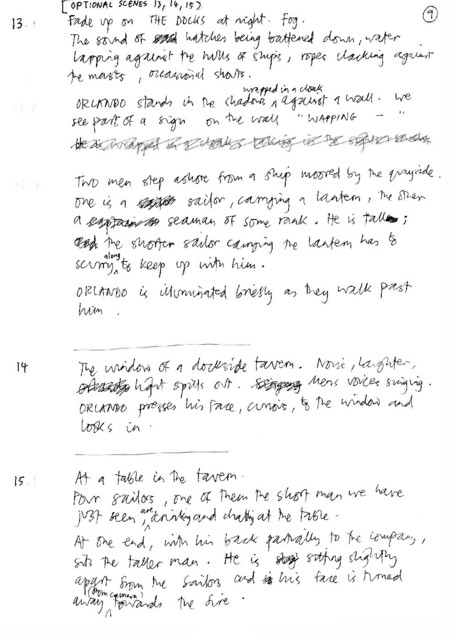 [OPTIONAL SCENES 13, 14, 15)
9
13. Fade up on THE DOCKS at night. Fog.
The sound of hatches being battened down, water
lapping against the hulls of ships, ropes clacking against
the masts, occasional shouts.
ORLANDO stands in the shadows wrapped in a cloak against a wall. We
see part of a sign on the wall "WAPPING — "
Two men step ashore from a ship moored by the quayside.
One is a sailor, carrying a lantern, the other
a seaman of some rank. He is tall;
the shorter sailor carrying the lantern has to
scurry along to keep up with him.
ORLANDO is illuminated briefly as they walk past
him.
14 The window of a dockside tavern. Noise, laughter,
light spills out. Mens voices singing.
ORLANDO presses his face, curious, to the window and
looks in.
15 At a table in the tavern.
Four sailors, one of them the short man we have
just seen, are drinking and chatting at the table.
At one end, with his back partially to the company,
sits the taller man. He is sitting slightly
apart from the sailors and his face is turned
away (from camera) towards the fire.